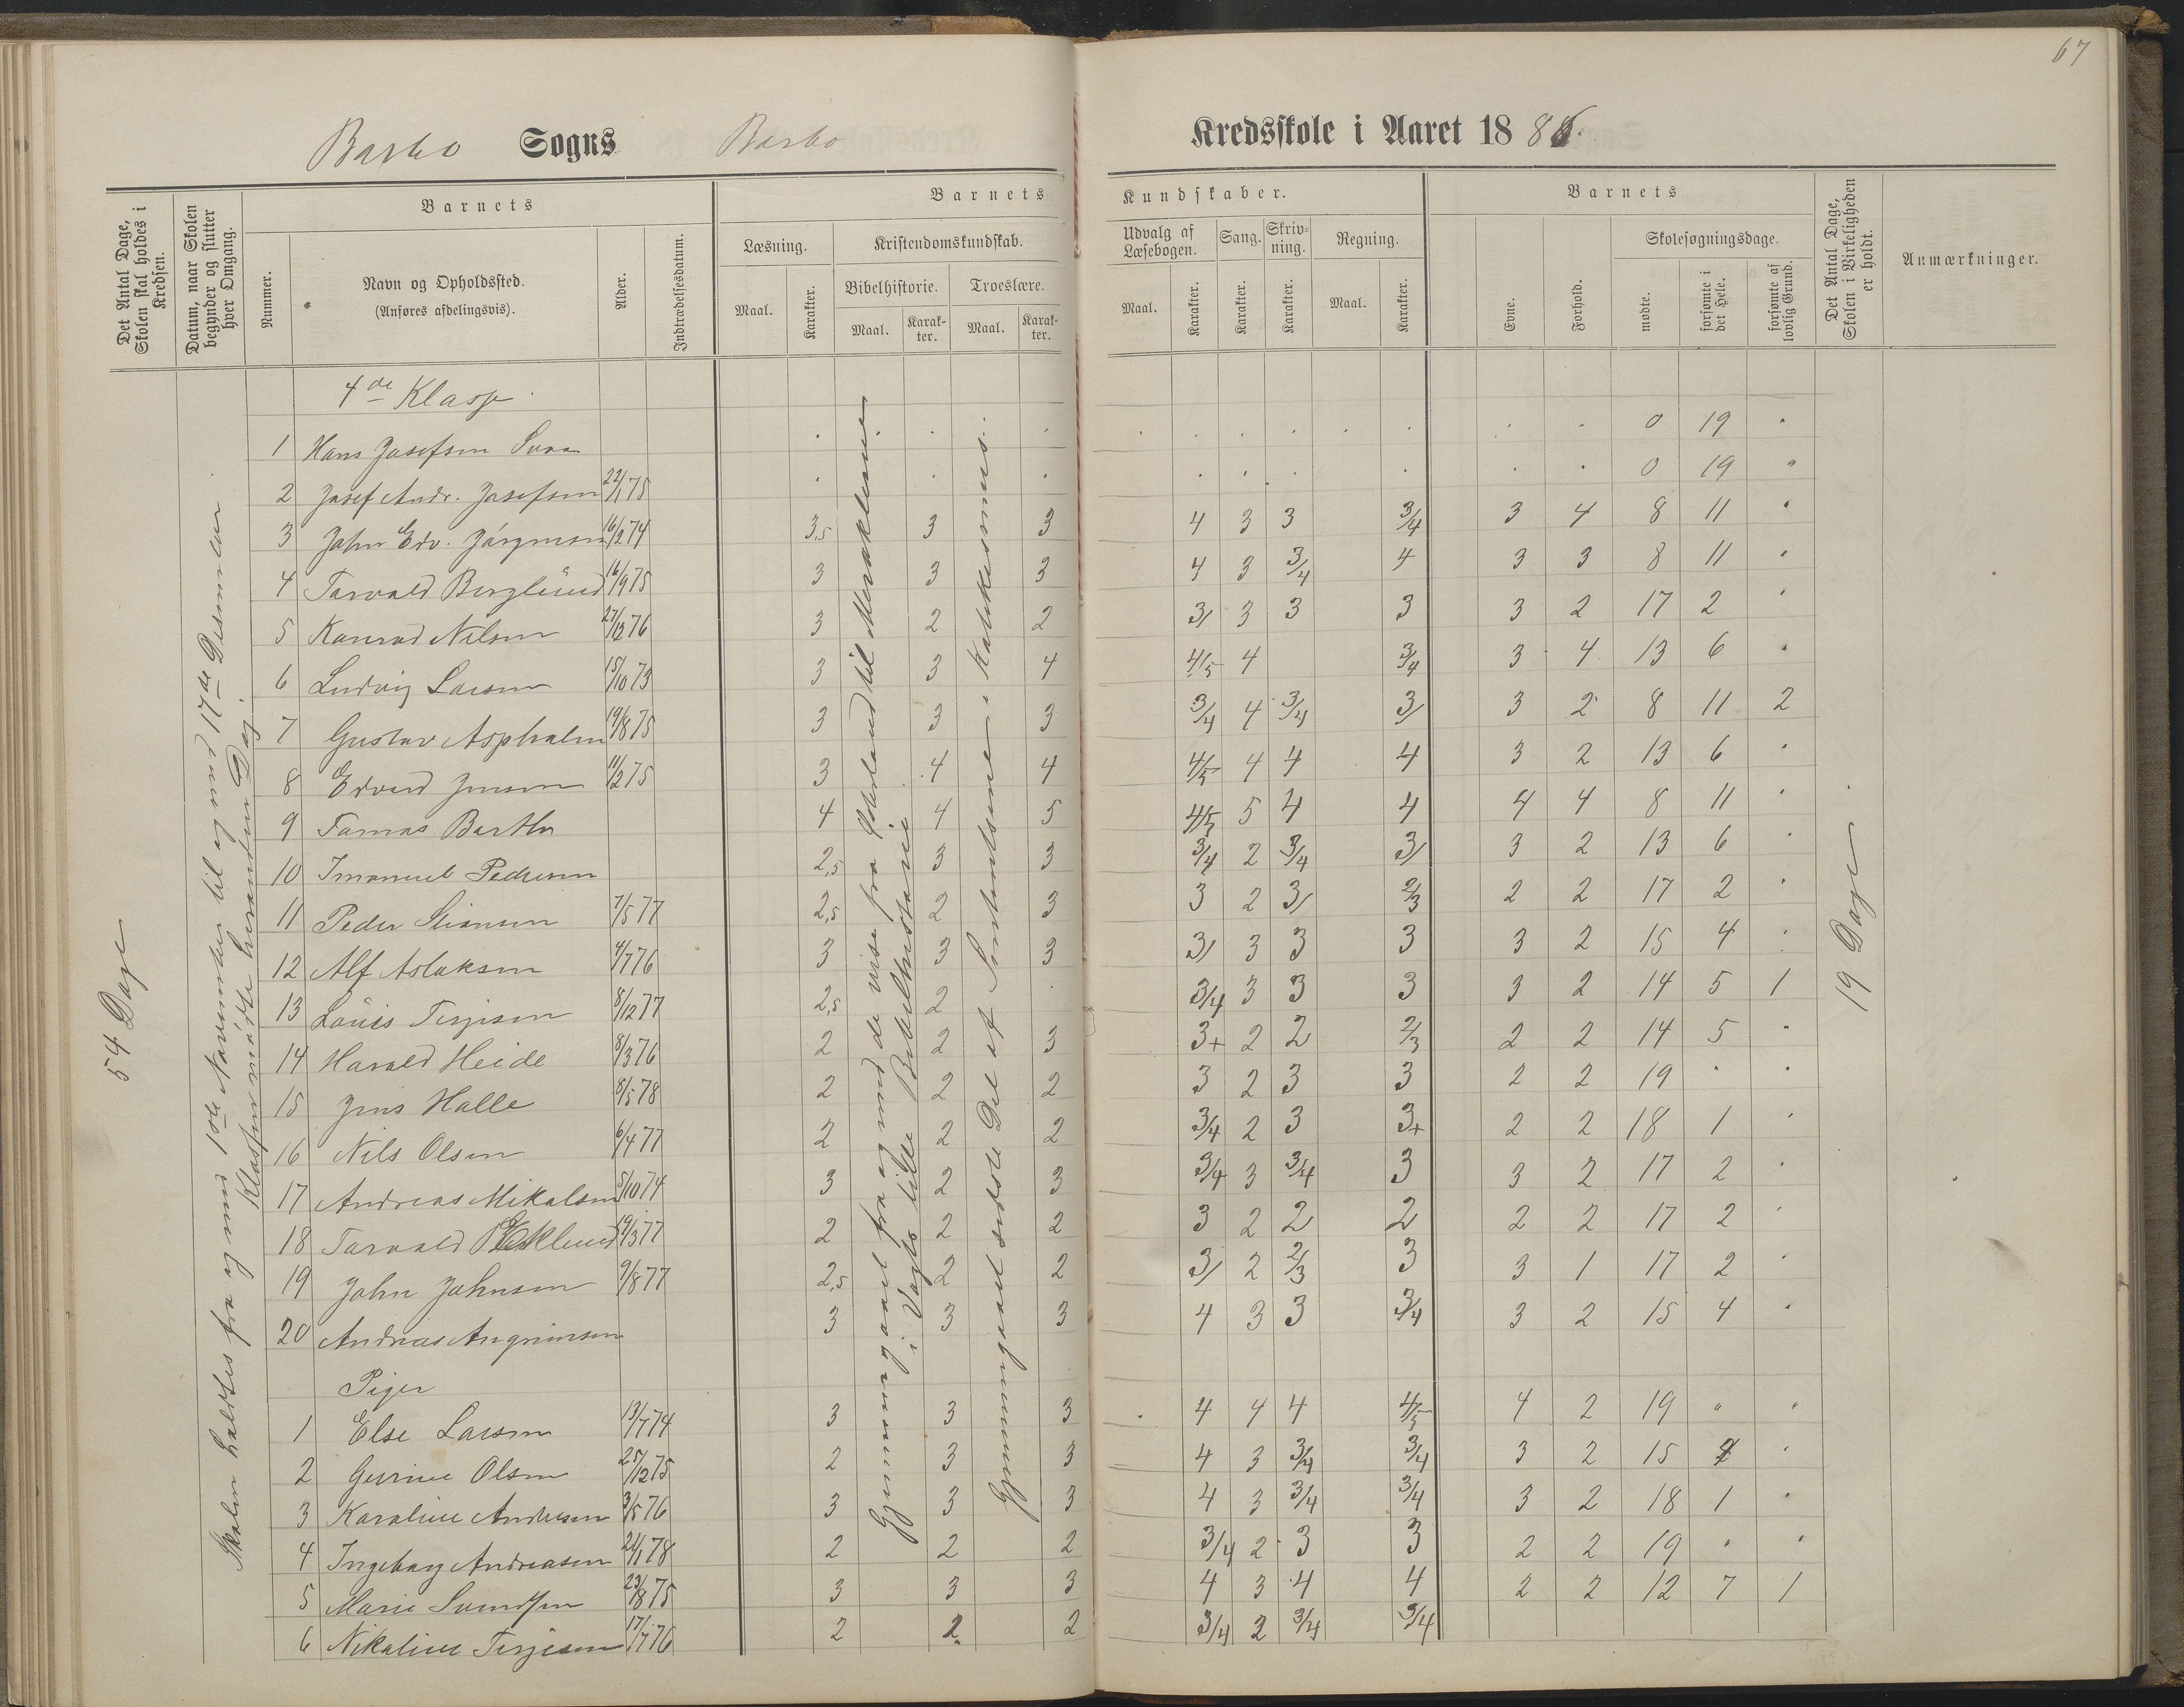 67
Barbo Sogns Barbo Kredsskole i Aaret 1886.
Det Antal Dage, Skolen skal holdes i Kredsen.
Datum, naar Skolen begynder og slutter hver Omgang.
Barnets
Nummer.
Navn og Opholdssted.
(Anføres afdelingsvis).
Alder.
Indtrædelsesdatum.
Barnets Kundskaber.
Læsning.
Maal.
Karakter.
Kristendomskundskab.
Bibelhistorie.
Maal.
Karakter.
Troeslære.
Maal.
Karakter.
Udvalg af Læsebogen.
Maal.
Karakter.
Sang.
Karakter.
Skrivning.
Karakter.
Regning.
Maal.
Karakter.
Barnets
Evne.
Forhold.
Skolesøgningsdage.
mødte.
forsømte i det Hele.
forsømte af lovlig Grund.
Det Antal Dage, Skolen i Virkeligheden er holdt.
Anmærkninger.
54 Dage
Skolen holdtes fra og med 1ste November til og med 17de Desember.
Klassen mødte hverandren Dag.
Gjennemgaaet fra og med de vise fra Østerland til Miraklerne
i Vogts lille Bibelhistorie
Gjennemgaaet sidste Del af Sentensene i Katekismus.
19 Dage
4de Klasse.
1 Hans Josefsen . . . . . . . . . . . 0 19 .
2 Josef Andr. Josefsen 22/1 75 . . . . . . . . 0 19 "
3 John Edv. Jörgensen 16/2 74 3,5 3 3 4 3 3 3/4 3 4 8 11 .
4 Torvald Berglund 16/9 75 3 3 3 4 3 3/4 4 3 3 8 11 .
5 Konrad Nilsen 27/12 76 3 2 2 3/ 3 3 3 3 2 17 2 .
6 Ludvig Larsen 15/10 73 3 3 4 4/5 4 3/4 3 4 13 6 .
7 Gustav Aspholm 19/8 75 3 3 3 3/4 4 3/4 3/ 3 2 8 11 2
8 Edvard Jensen 11/2 75 3 4 4 4/5 4 4 4 3 2 13 6 .
9 Tomas Barth 4 4 5 4/5 5 4 4 4 4 8 11 .
10 Imanuel Pedersen 2,5 3 3 3/4 2 3/4 3/ 3 2 13 6 .
11 Peder Stiansen 7/5 77 2,5 2 3 3 2 3/ 2/3 2 2 17 2 .
12 Alf Aslaksen 4/7 76 3 3 3 3/ 3 3 3 3 2 15 4 .
13 Louis Terjesen 8/12 77 2,5 2 . 3/4 3 3 3 3 2 14 5 1
14 Harald Heide 8/3 76 2 2 3 3+ 2 2 2/3 2 2 14 5 .
15 Jens Halle 8/5 78 2 2 2 3 2 3 3 2 2 19 . .
16 Nils Olsen 6/4 77 2 2 2 3/4 2 3 3+ 2 2 18 1 .
17 Andreas Mikalsen 5/10 74 3 2 3 3/4 3 3/4 3 3 2 17 2 .
18 Torvald Eklund 19/3 77 2 2 2 3 2 2 2 2 2 17 2 .
19 John Johnsen 9/8 77 2,5 2 2 3/ 2 2/3 3 3 1 17 2 .
20 Andreas Angrimsen 3 3 3 4 3 3 3/4 3 2 15 4 .
Piger
1 Else Larsen 13/7 74 3 3 3 4 4 4 4/5 4 2 19 " "
2 Gurine Olsen 25/12 75 2 3 3 4 3 3/4 3/4 3 2 15 4 .
3 Karoline Andersen 3/5 76 3 3 3 4 3 3/4 3/4 3 2 18 1 .
4 Ingeborg Andreasen 24/1 78 2 2 2 3/4 2 3 3 2 2 19 . .
5 Marie Svendsen 23/8 75 3 3 3 4 3 4 4 2 2 12 7 1
6 Nikoline Terjesen 17/7 76 2 2 2 3/4 2 3/4 3/4